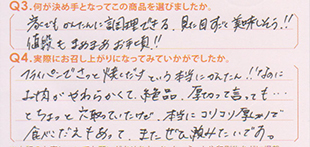 Q3.何が決め手となってこの商品を選びましたか。
誰でもかんたんに調理できる、見た目すごく美味しそう!!
値段もまあまあお手頃!!
Q4.実際にお召し上がりになってみていかがでしたか。
フライパンでさっと焼くだけという本当にかんたん!!なのに
お肉がやわらかくて、絶品。厚切って言っても…
とちょっと
思っていたけど、本当にコリコリ厚切りで
食べごたえもあって、またぜひ頼みたいであ